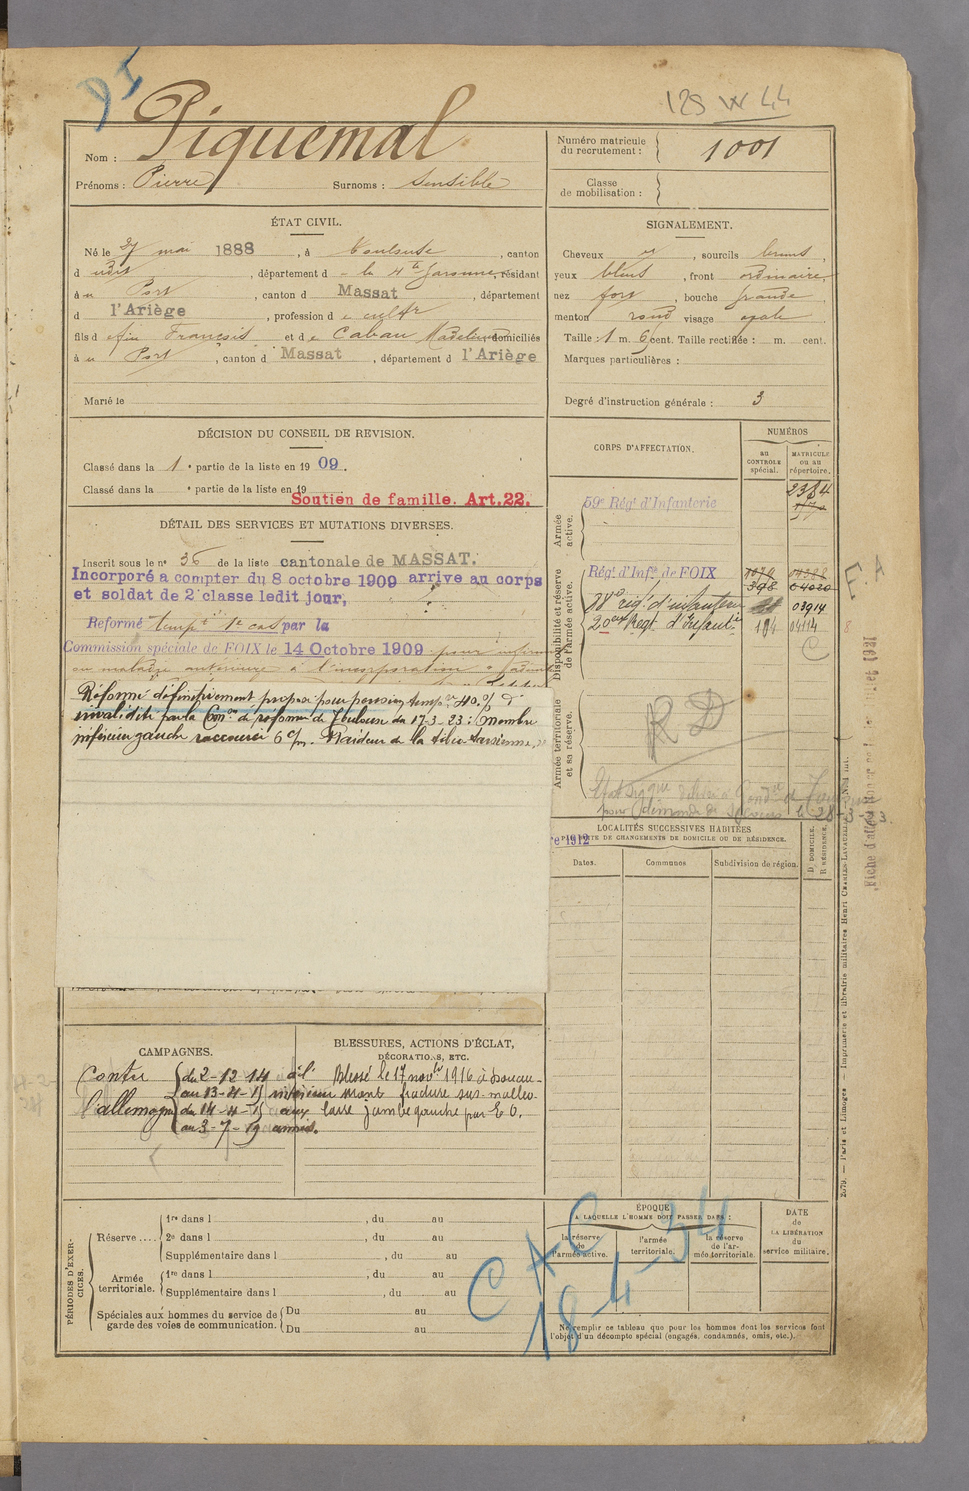 DI
125 W 44
Nom : Piquemal
Prénoms : Pierre Surnoms : Sensible
Numéro matricule du recrutement : 1001
Classe de mobilisation :
ÉTAT CIVIL.
Né le 27 mai 1888, à Toulouse, canton
d udit, département d e la Hte Garonne, résidant
à u Port, canton d Massat, département
d l'Ariège, profession d e cultr
fils d e feu François et d e Caban Madeleine, domiciliés
à u Port, canton d Massat, département d l'Ariège
Marié le
SIGNALEMENT.
Cheveux, sourcils bruns,
yeux bleus, front ordinaire,
nez fort, bouche grande,
menton rond visage ovale
Taille : 1 m. cent. Taille rectifiée : m. cent.
Marques particulières :
Degré d'instruction générale : 3
DÉCISION DU CONSEIL DE REVISION.
Classé dans la 1e partie de la liste en 1909.
Classé dans la e partie de la liste en 19
Soutien de famille. Art. 22.
DÉTAIL DES SERVICES ET MUTATIONS DIVERSES.
Inscrit sous le n° 36 de la liste cantonale de MASSAT.
Incorporé a compter du 8 octobre 1909 arrive au corps
et soldat de 2e classe ledit jour,
Reformé tempt 1e cas par la
Commission spéciale de FOIX le 14 Octobre 1909 pour
ou maladie antérieure à l'incorporation
Réformé définitivement propos pour pension temp re 40 % d'
invalidité par la Con on de réforme de Toulouse du 17-3-23 : membre
inférieur gauche raccourci 6 c/m. Raideur de la tibio tarsienne,
CORPS D'AFFECTATION.
NUMÉROS
au CONTROLE spécial.
MATRICULE ou au répertoire.
Armée active.
59e Régt d'Infanterie
2384
Disponibilité et réserve de l'armée active.
Régt d'Infie de FOIX
398
régt d'infanterie 03914
20eme Régt d'Infantie 194 04114
C
Armée territoriale et sa réserve.
RD
le 28-3-23
E. A
re 1912
LOCALITÉS SUCCESSIVES HABITÉES
PAR SUITE DE CHANGEMENTS DE DOMICILE OU DE RÉSIDENCE.
Dates. Communes Subdivision de région. D. DOMICILE. R RÉSIDENCE.
CAMPAGNES.
Contre l'allemagne
du 2-12-14 à l'
au 13-4-15 intérieur
du 14-4-15 aux
au 3-7-19 armées.
BLESSURES, ACTIONS D'ÉCLAT,
DÉCORATIONS, ETC.
Blessé le 17 novbre 1916 à Doüau-
mont fracture sus-malléo-
laire jambe gauche par E O.
PÉRIODES D'EXERCICES.
Réserve....
1re dans l , du au
2e dans l , du au
Supplémentaire dans l , du au
Armée territoriale.
1re dans l , du au
Supplémentaire dans l , du au
Spéciales aux hommes du service de garde des voies de communication.
Du au
Du au
ÉPOQUE
A LAQUELLE L'HOMME DOIT PASSER DANS :
la réserve de l'armée active.
l'armée territoriale.
la réserve de l'armée territoriale.
DATE
de
LA LIBÉRATION
du
service militaire.
CAC
18-4-34
Ne remplir ce tableau que pour les hommes dont les services font
l'objet d'un décompte spécial (engagés, condamnés, omis, etc.).
2079. — Paris et Limoges. — Imprimerie et librairie militaires Henri CHARLES-LAVAUZELLE.